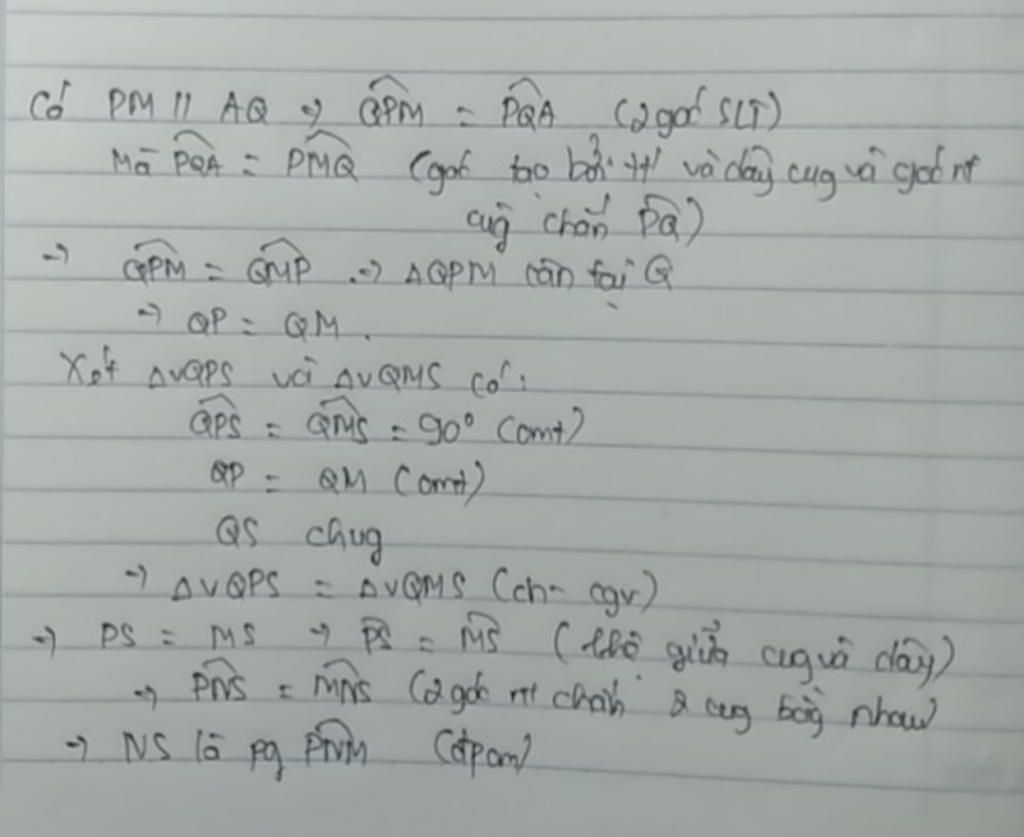 Có PM // AQ → \widehat{QPM} = \widehat{PQA} (2 góc SLT)
Mà \widehat{PQA} = \widehat{PMQ} (góc tạo bởi tt và dây cug và góc nt
cùg chắn \overset{\frown}{PQ})
→ \widehat{QPM} = \widehat{QMP} → ΔQPM cân tại Q
→ QP = QM.
Xét ΔvQPS và ΔvQMS có:
\widehat{QPS} = \widehat{QMS} = 90° (cmt)
QP = QM (cmt)
QS chug
→ ΔvQPS = ΔvQMS (ch - cgv)
→ PS = MS → \overset{\frown}{PS} = \overset{\frown}{MS} (lhệ giữa cug và dây)
→ \widehat{PNS} = \widehat{MNS} (2 góc nt chắn 2 cug bằg nhau)
→ NS là pg \widehat{PNM} (đpcm)